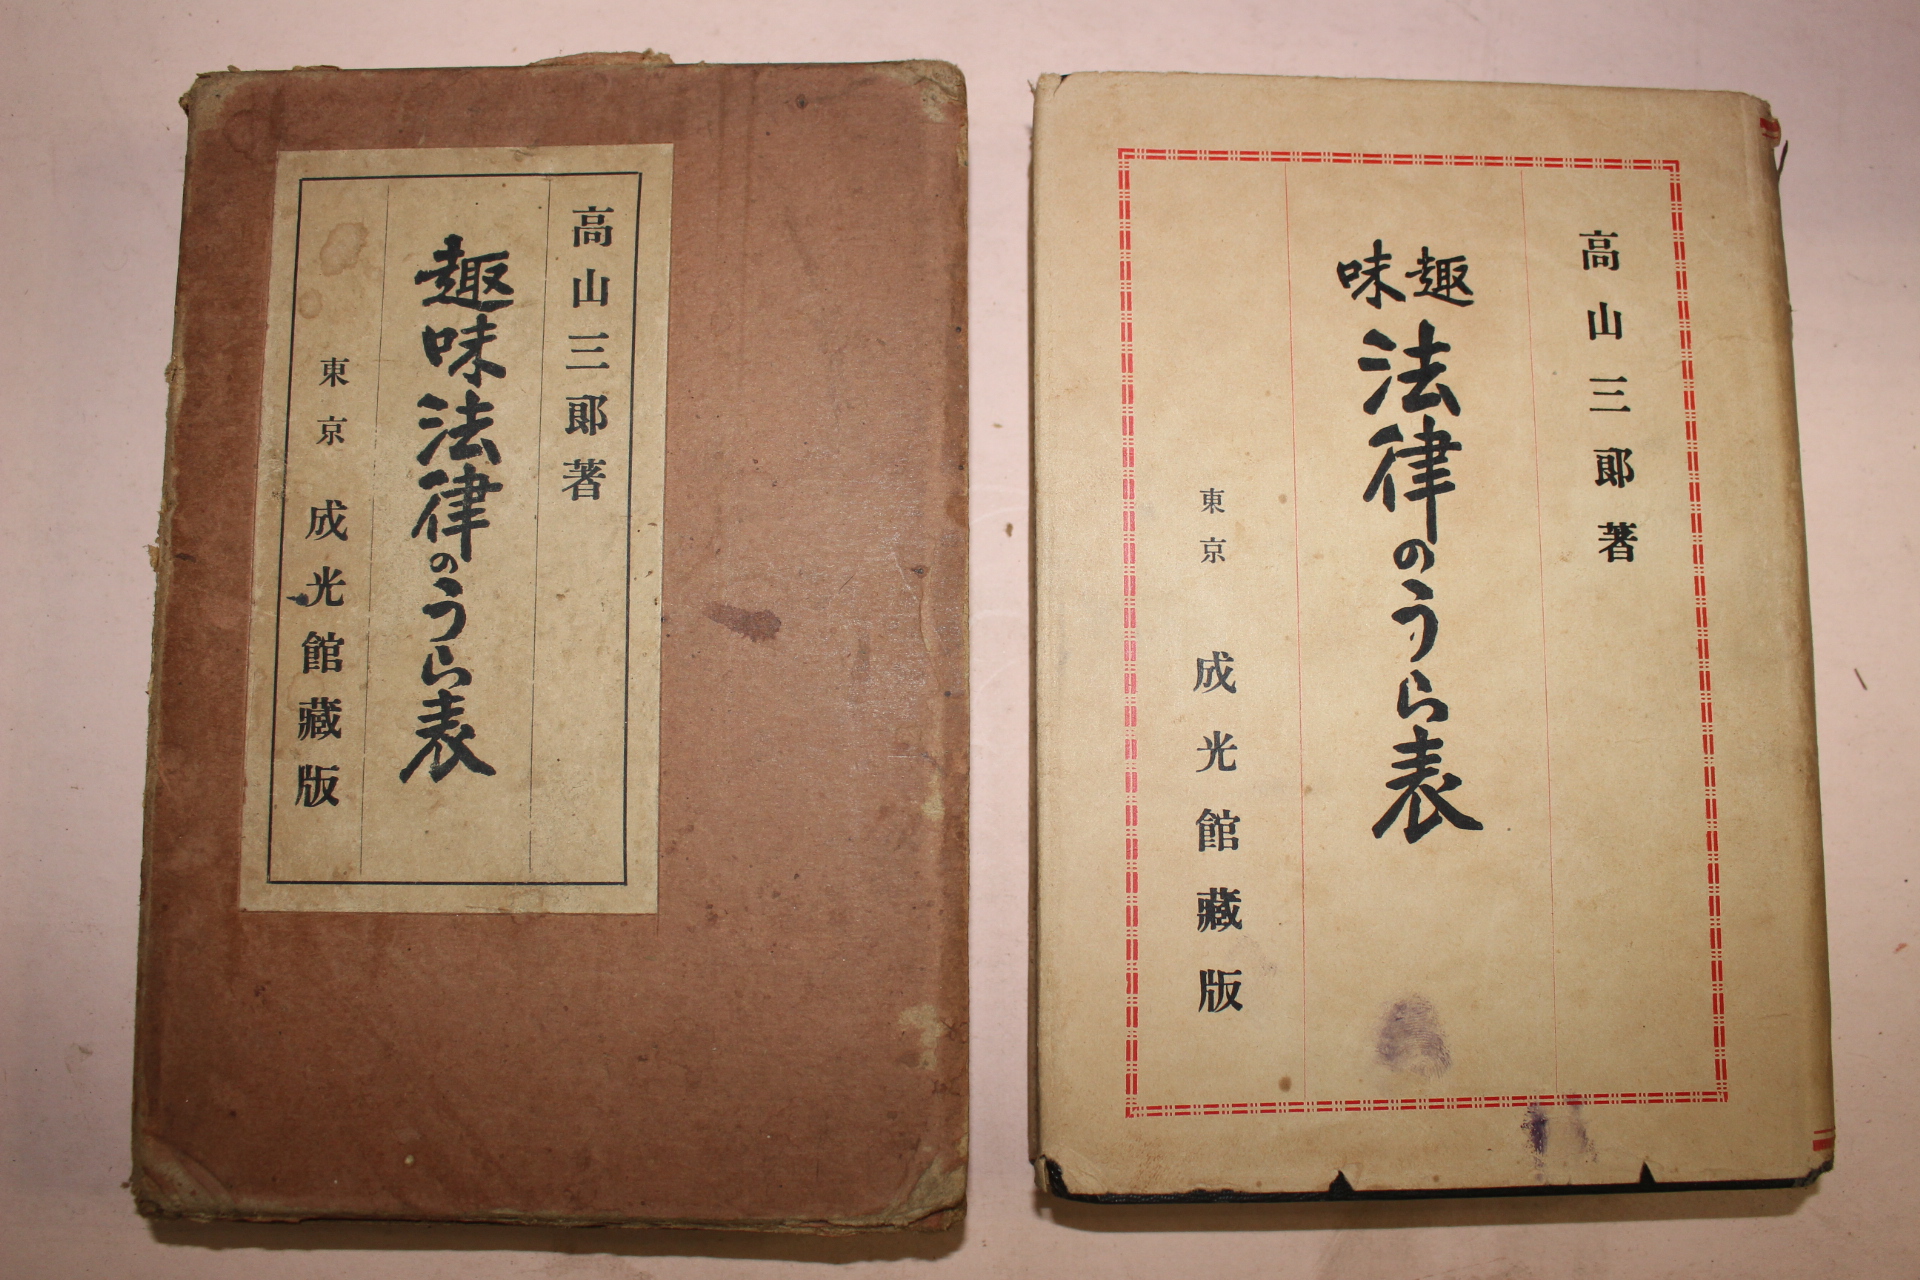 高山三郎著
趣味法律のうら表
東京 成光館藏版
高山三郎著
趣味
法律のうら表
東京 成光館藏版